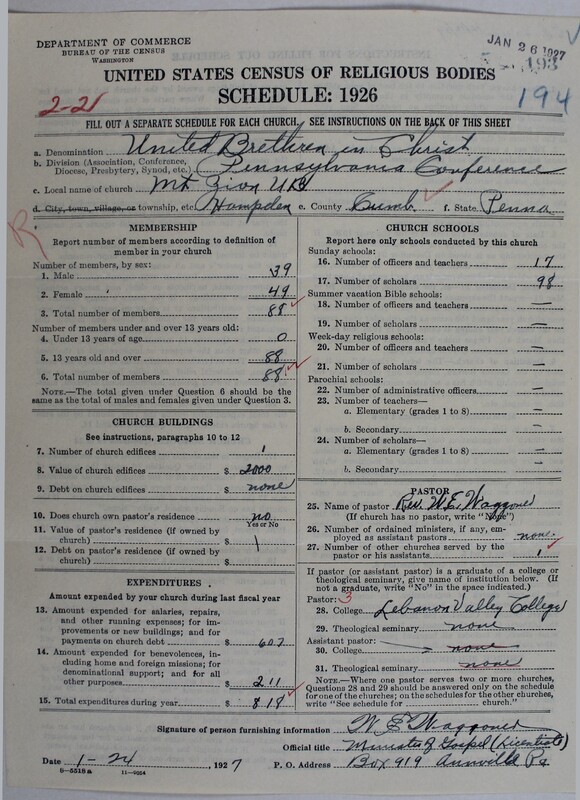 DEPARTMENT OF COMMERCE
BUREAU OF THE CENSUS
WASHINGTON
JAN 26 1927
193
UNITED STATES CENSUS OF RELIGIOUS BODIES
SCHEDULE: 1926
2-21
194
FILL OUT A SEPARATE SCHEDULE FOR EACH CHURCH. SEE INSTRUCTIONS ON THE BACK OF THIS SHEET
a. Denomination United Brethren in Christ
b. Division (Association, Conference, Diocese, Presbytery, Synod, etc.) Pennsylvania Conference
c. Local name of church Mt. Zion UB
d. City, town, village, or township, etc. Hampden e. County Cumb. f. State Penna
R
MEMBERSHIP
Report number of members according to definition of
member in your church
Number of members, by sex:
1. Male 39
2. Female 49
3. Total number of members 88
Number of members under and over 13 years old:
4. Under 13 years of age 0
5. 13 years old and over 88
6. Total number of members 88
NOTE.—The total given under Question 6 should be
same as the total of males and females given under Question 3.
CHURCH BUILDINGS
See instructions, paragraphs 10 to 12
7. Number of church edifices 1
8. Value of church edifices $ 2000
9. Debt on church edifices $ none
10. Does church own pastor's residence? no
Yes or No
11. Value of pastor's residence (if owned by
church) $
12. Debt on pastor's residence (if owned by
church) $
EXPENDITURES
Amount expended by your church during last fiscal year
13. Amount expended for salaries, repairs,
and other running expenses; for im-
provements or new buildings; and for
payments on church debt $ 607
14. Amount expended for benevolences, in-
cluding home and foreign missions; for
denominational support; and for all
other purposes $ 211
15. Total expenditures during year $ 818
CHURCH SCHOOLS
Report here only schools conducted by this church
Sunday schools:
16. Number of officers and teachers 17
17. Number of scholars 98
Summer vacation Bible schools:
18. Number of officers and teachers —
19. Number of scholars —
Week-day religious schools:
20. Number of officers and teachers —
21. Number of scholars —
Parochial schools:
22. Number of administrative officers —
23. Number of teachers—
a. Elementary (grades 1 to 8) —
b. Secondary —
24. Number of scholars—
a. Elementary (grades 1 to 8) —
b. Secondary —
PASTOR
25. Name of pastor Rev. W. E. Waggoner
(If church has no pastor, write "None")
26. Number of ordained ministers, if any, em-
ployed as assistant pastors none
27. Number of other churches served by the
pastor or his assistants 1
If pastor (or assistant pastor) is a graduate of a college or
theological seminary, give name of institution below. (If
not a graduate, write "No" in the space indicated.)
Pastor: 3
28. College Lebanon Valley College
29. Theological seminary none
Assistant pastor:
30. College none
31. Theological seminary none
NOTE.—Where one pastor serves two or more churches,
Questions 28 and 29 should be answered only on the schedule
for one of the churches; on the schedules for the other churches,
write "See schedule for church."
Signature of person furnishing information W. E. Waggoner
Official title Minister of Gospel (Licentiate)
Date 1-24, 1927 P. O. Address Box 919 Annville Pa
8-5518a 11-9064